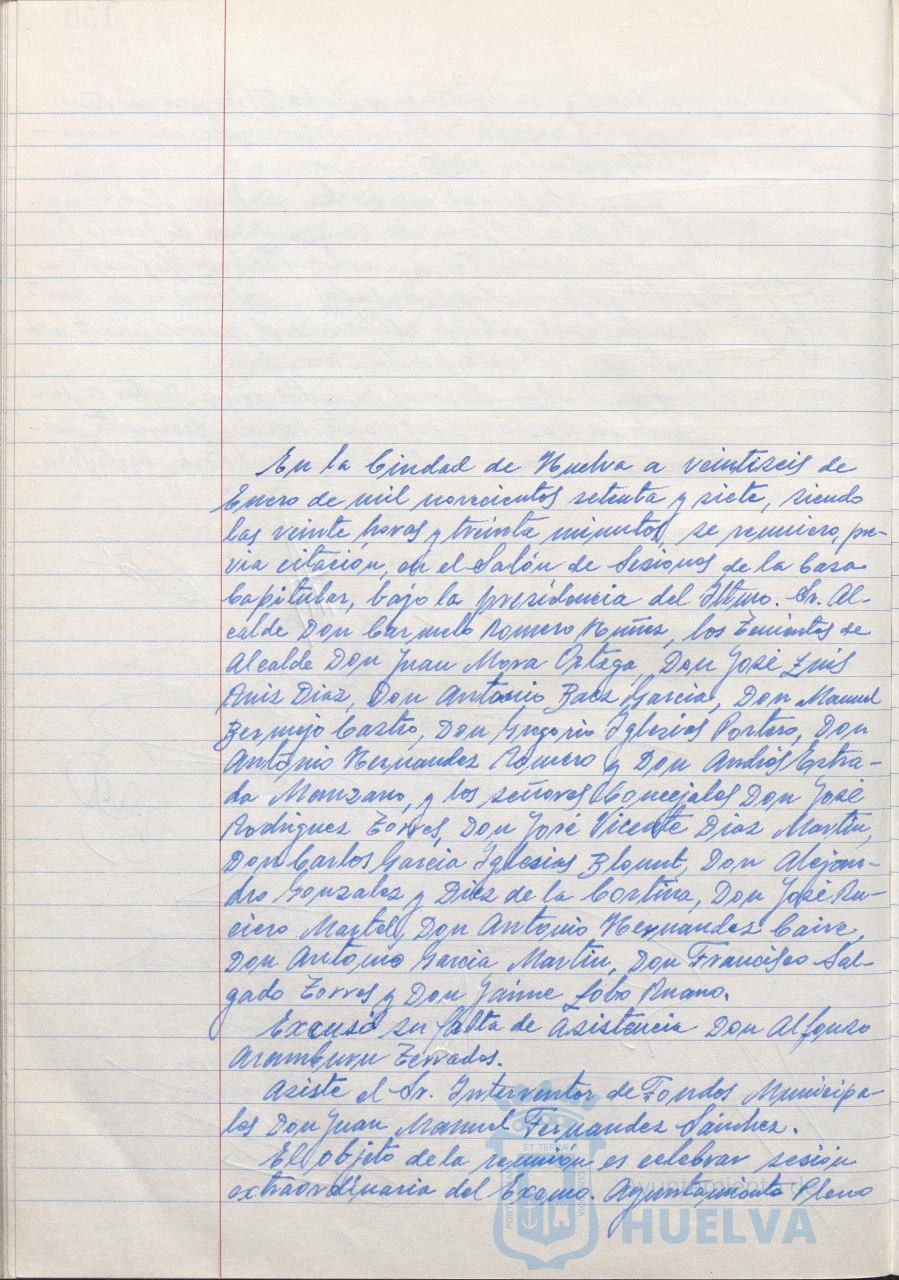 En la Ciudad de Huelva a veintiseis de
Enero de mil novecientos setenta y siete, siendo
las veinte horas y treinta minutos, se reuniero, pre-
via citación, en el Salón de Sesiones de la Casa
Capitular, bajo la presidencia del Iltmo. Sr. Al-
calde Don Carmelo Romero Nuñez, los Tenientes de
Alcalde Don Juan Mora Ortega, Don José Luis
Ruiz Diaz, Don Antonio Baez Garcia, Don Manuel
Bermejo Castro, Don Gregorio Iglesias Portero, Don
Antonio Hernandez Romero y Don Andrés Estra-
da Manzano, y los señores Concejales Don José
Rodriguez Torres, Don José Vicente Diaz Martin,
Don Carlos Garcia Iglesias Blount, Don Alejan-
dro Gonzalez y Diez de la Cortina, Don José Ru-
ciero Martel, Don Antonio Hernandez Caire,
Don Antonio Garcia Martin, Don Francisco Sal-
gado Torres y Don Jaime Lobo Ruano.
Excusó su falta de asistencia Don Alfonso
Aramburu Terrados.
Asiste el Sr. Interventor de Fondos Municipa-
les Don Juan Manuel Fernandez Sánchez.
El objeto de la reunión es celebrar sesión
extraordinaria del Excmo. Ayuntamiento Pleno
ET TERRA
Ayuntamiento de
HUELVA